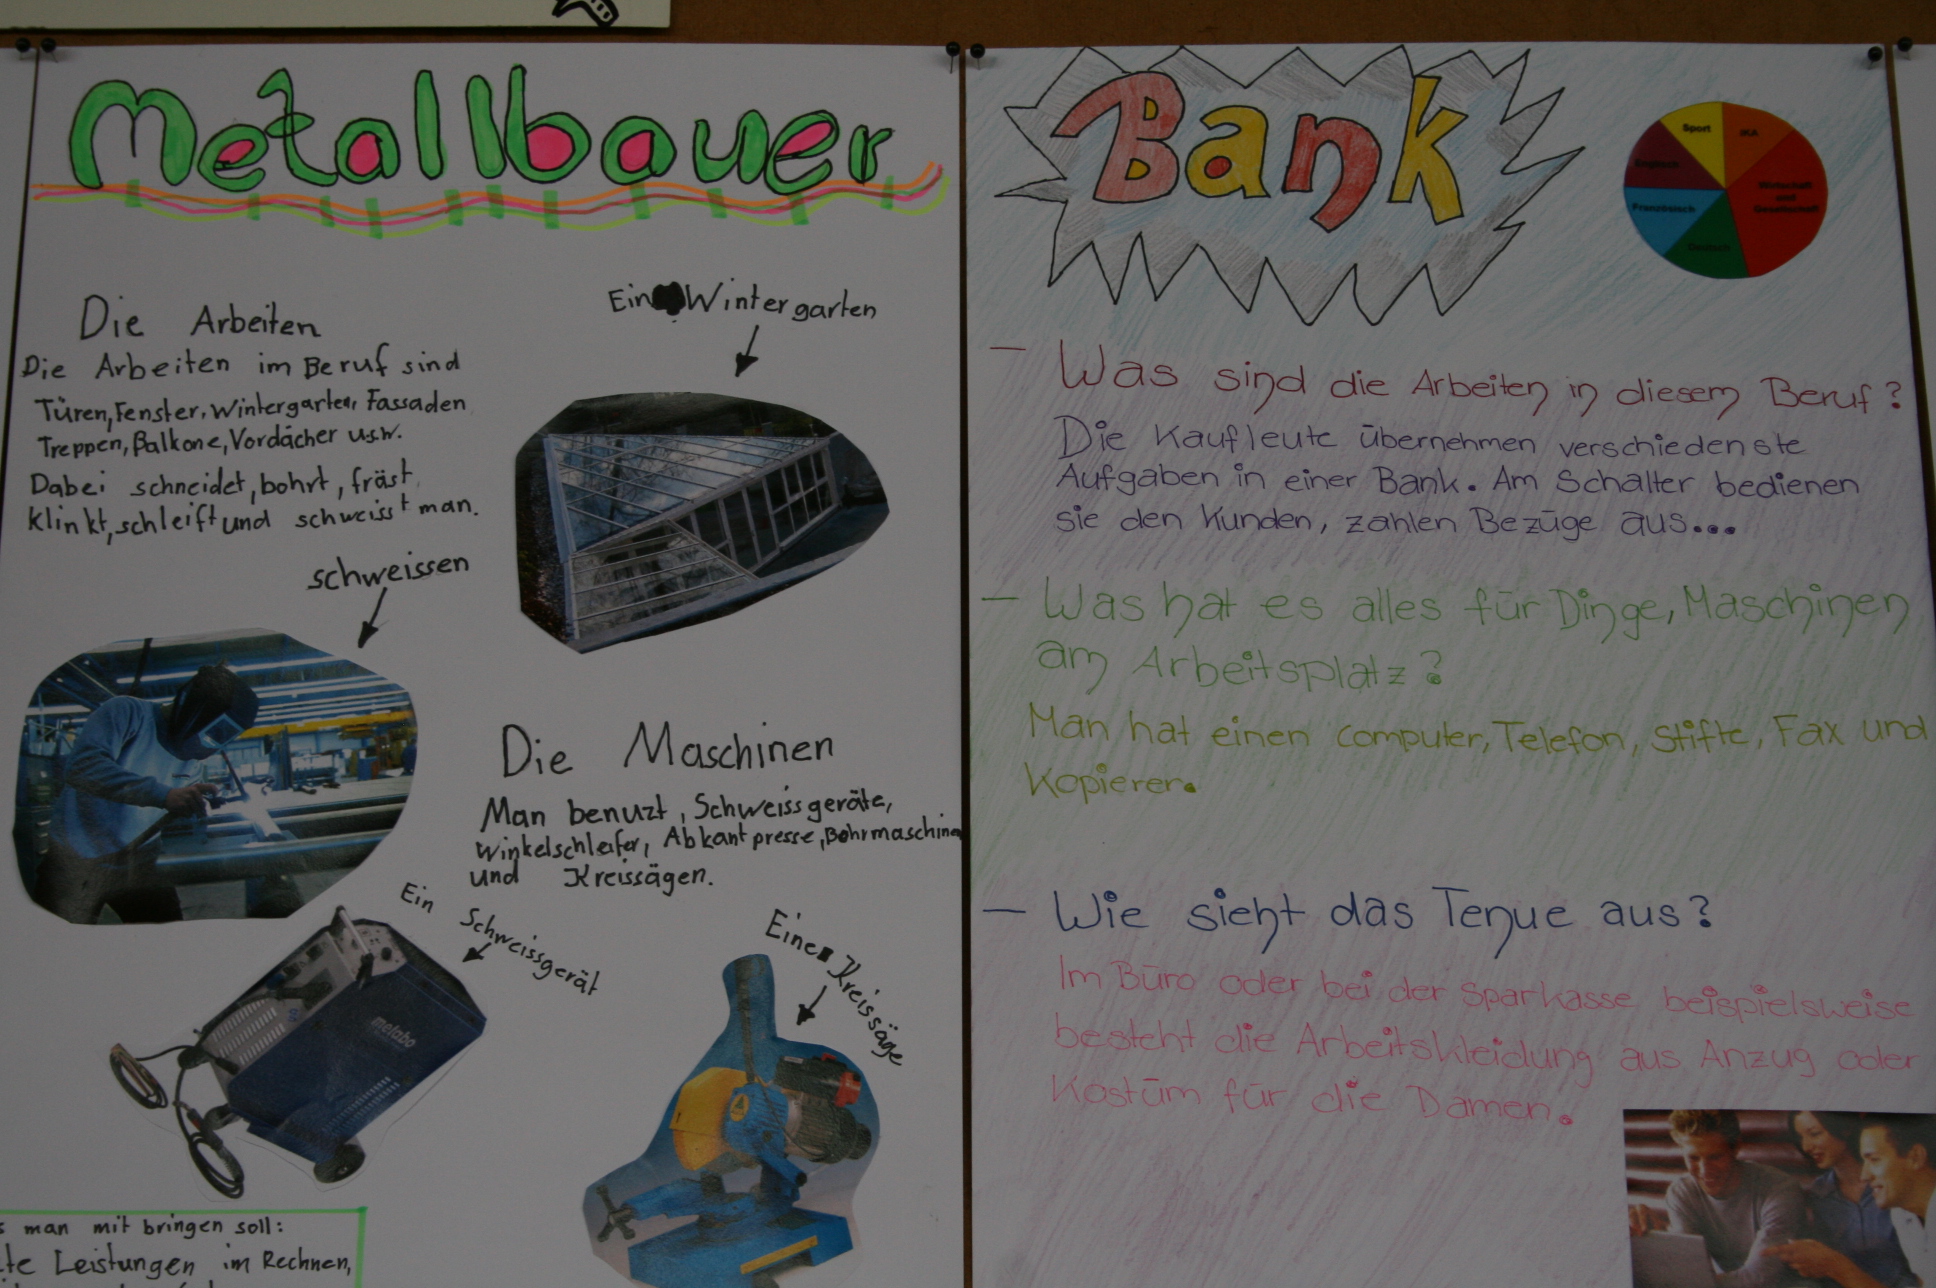 Metallbauer
Die Arbeiten
Die Arbeiten im Beruf sind
Türen, Fenster, Wintergarten, Fassaden
Treppen, Balkone, Vordächer u.s.w.
Dabei schneidet, bohrt, fräst,
klinkt, schleift und schweisst man.
Ein Wintergarten
schweissen
Die Maschinen
Man benuzt, Schweissgeräte,
Winkelschleifer, Abkantpresse, Bohrmaschine
und Kreissägen.
Ein Schweissgerät
metabo
Eine Kreissäge
man mit bringen soll:
Leistungen im Rechnen,
Bank
Sport
IKA
Englisch
Wirtschaft
und
Gesellschaft
Französisch
Deutsch
- Was sind die Arbeiten in diesem Beruf?
Die Kaufleute übernehmen verschiedenste
Aufgaben in einer Bank. Am Schalter bedienen
sie den Kunden, zahlen Bezüge aus...
- Was hat es alles für Dinge, Maschinen
am Arbeitsplatz?
Man hat einen computer, Telefon, Stifte, Fax und
Kopierer.
- Wie sieht das Tenue aus?
Im Büro oder bei der Sparkasse beispielsweise
besteht die Arbeitskleidung aus Anzug oder
Kostüm für die Damen.